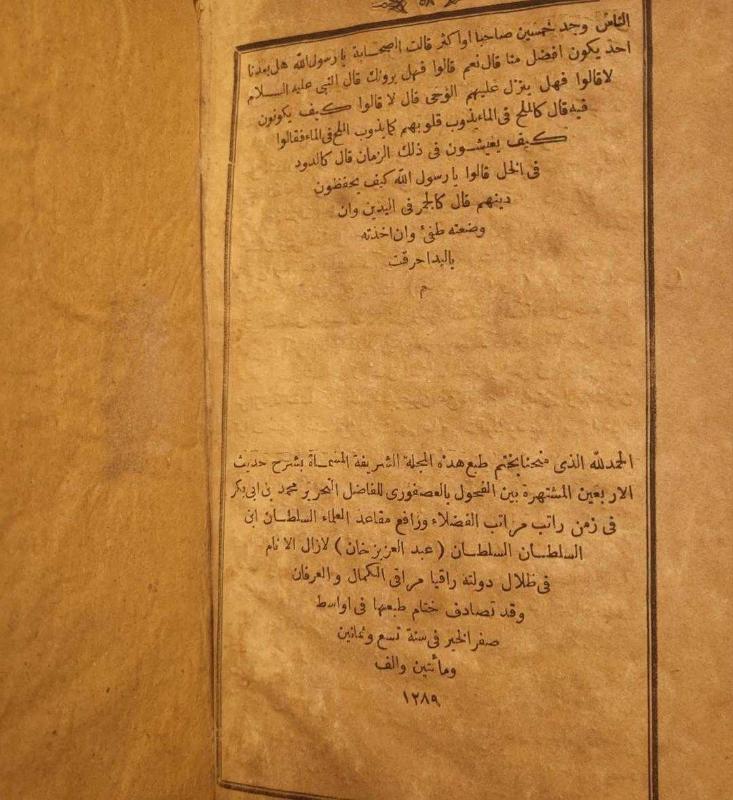 ٥٨
الناس وجد خمسين صاحبا او اكثر قالت الصحابة يا رسول الله هل بعدنا
احد يكون افضل منا قال نعم قالوا فهل يرونك قال النبى عليه السلام
لا قالوا فهل ينزل عليهم الوحى قال لا قالوا كيف يكونون
فيه قال كالملح فى الماء يذوب قلوبهم كما يذوب الملح فى الماء فقالوا
كيف يعيشون فى ذلك الزمان قال كالدود
فى الخل قالوا يا رسول الله كيف يحفظون
دينهم قال كالجمر فى اليدين وان
وضعته طفئ وان اخذته
باليد احرقت
م
الحمد لله الذى منحنا بختم طبع هذه المجلة الشريفة المسماة بشرح حديث
الاربعين المشتهرة بين الفحول بالعصفورى للفاضل النحرير محمد بن ابى بكر
فى زمن راتب مراتب الفضلاء ورافع مقاعد العلماء السلطان ابن
السلطان السلطان (عبد العزيز خان) لازال الانام
فى ظلال دولته راقيا مراقى الكمال والعرفان
وقد تصادف ختام طبعها فى اواسط
صفر الخير فى سنة تسع وثمانين
ومائتين والف
١٢٨٩